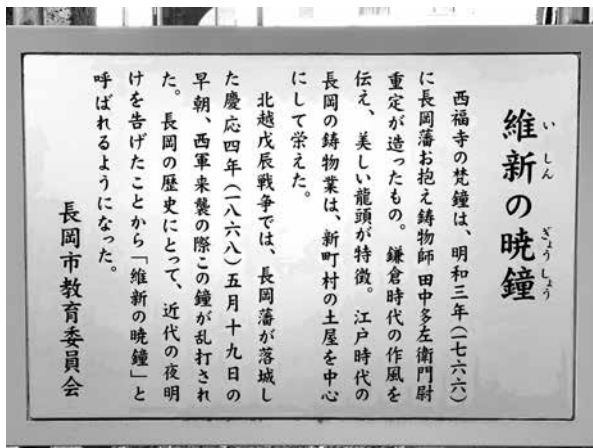 維新の暁鐘
いしん ぎょうしょう
西福寺の梵鐘は、明和三年(一七六六)
に長岡藩お抱え鋳物師田中多左衛門尉
重定が造ったもの。鎌倉時代の作風を
伝え、美しい龍頭が特徴。江戸時代の
長岡の鋳物業は、新町村の土屋を中心
にして栄えた。
北越戊辰戦争では、長岡藩が落城し
た慶応四年(一八六八)五月十九日の
早朝、西軍来襲の際この鐘が乱打され
た。長岡の歴史にとって、近代の夜明
けを告げたことから「維新の暁鐘」と
呼ばれるようになった。
長岡市教育委員会